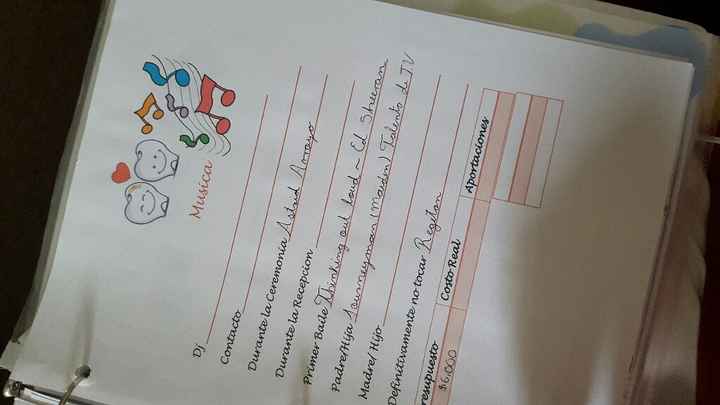 Musica
Dj
Contacto
Durante la Ceremonia Astrid Arroyo
Durante la Recepcion
Primer Baile Thinking out loud ~ Ed Sheeran
Padre/Hija Journeyman (Maidm) Talento de TV
Madre/ Hijo
Definitivamente no tocar Regeton
resupuesto Costo Real Aportaciones
$6,000